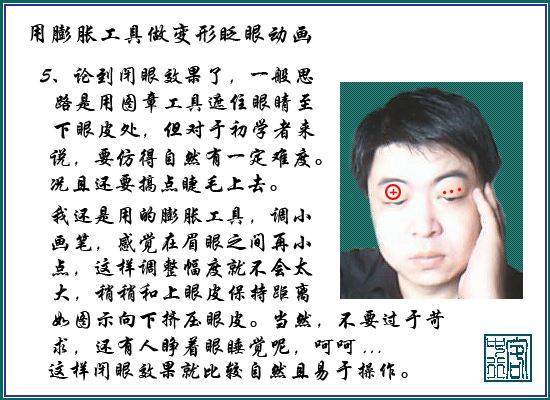 用膨胀工具做变形眨眼动画
5、论到闭眼效果了，一般思
路是用图章工具遮住眼睛至
下眼皮处，但对于初学者来
说，要仿得自然有一定难度。
况且还要搞点睫毛上去。
我还是用的膨胀工具，调小
画笔，感觉在眉眼之间再小
点，这样调整幅度就不会太
大，稍稍和上眼皮保持距离
如图示向下挤压眼皮。当然，不要过于苛
求，还有人睁着眼睡觉呢，呵呵...
这样闭眼效果就比较自然且易于操作。